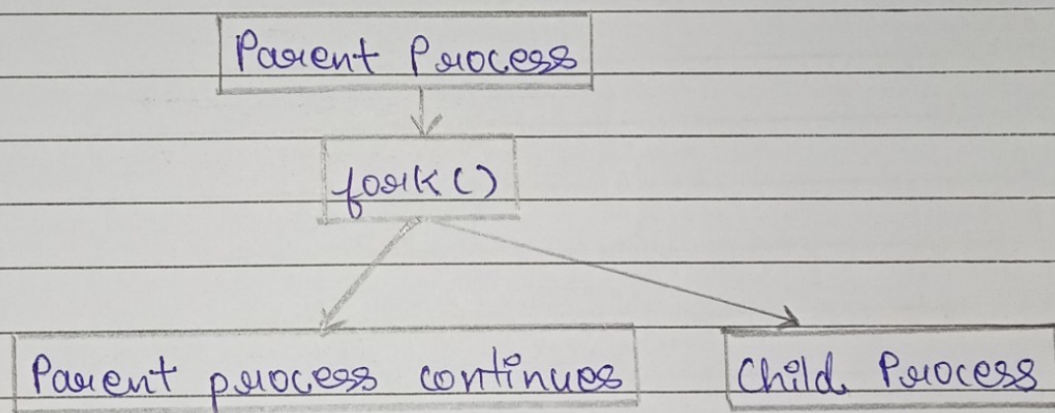 Parent Process
fork()
Parent process continues
Child Process